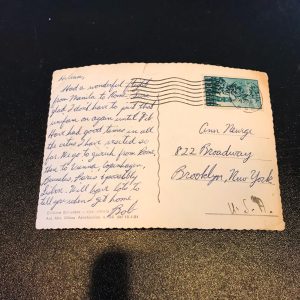 Hi Ann,
Had a wonderful flight
from Manila to Rome.
glad I don't have to put that
uniform on again until Feb
Have had good times in all
the cities I have visited so
far. Go to Zurich from Rome,
then to Vienna, Copenhagen,
Brussels, Paris & possibly
Lisbon. Will have lots to
tell you when I get home
Bob
Ann
822 Broadway
Brooklyn, New York
U.S.A.